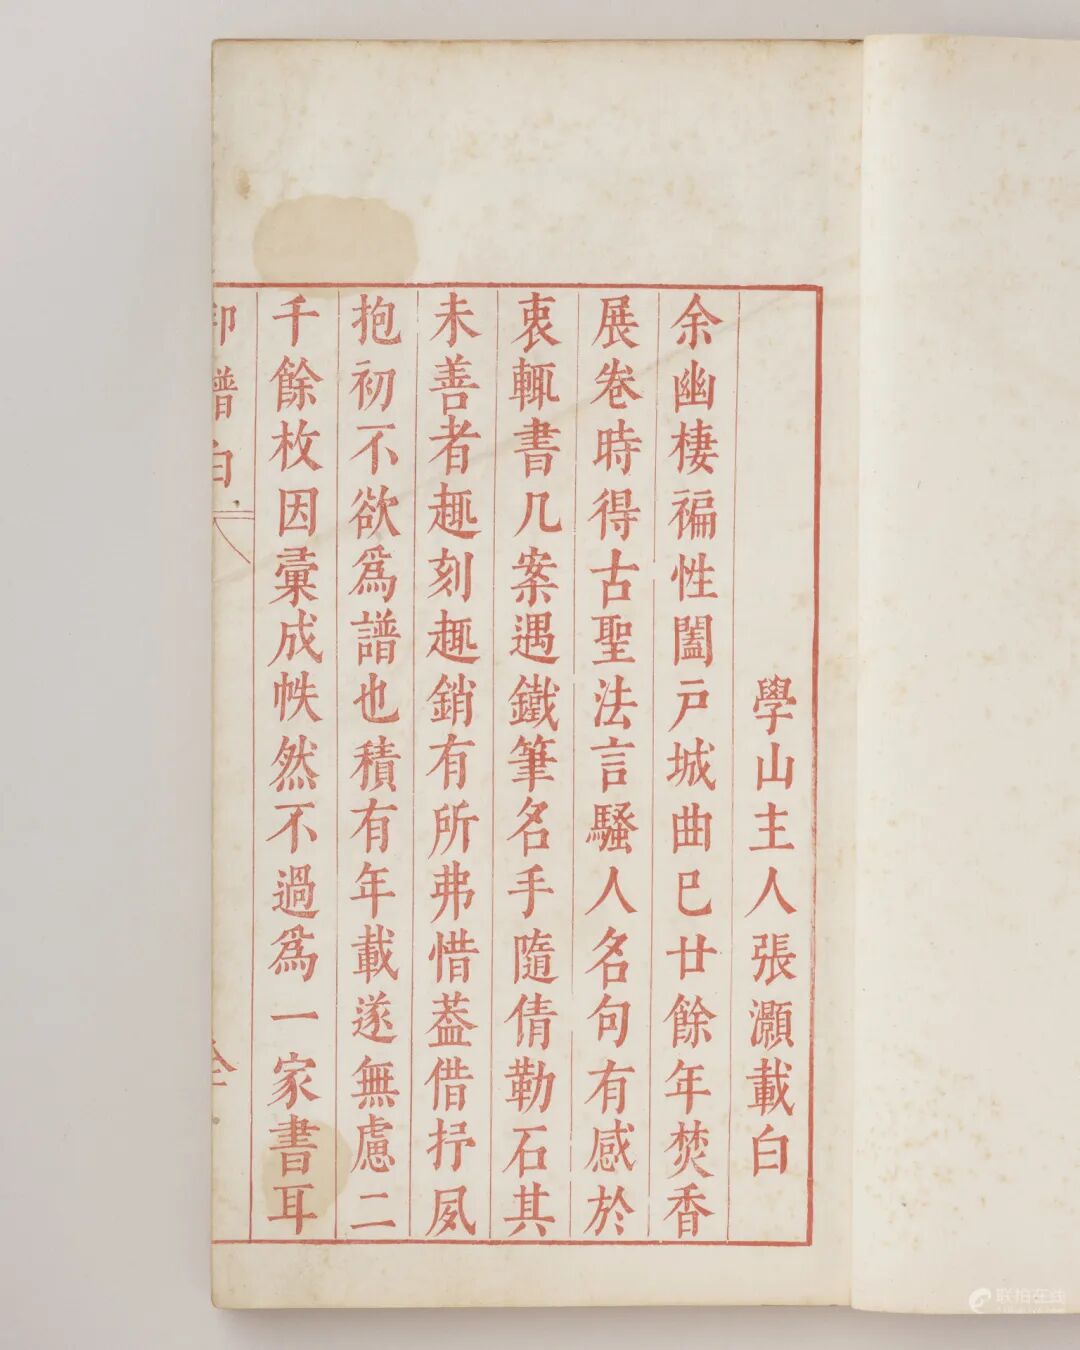 學山主人張灝載白
余幽棲褊性闔戸城曲已廿餘年焚香
展卷時得古聖法言騷人名句有感於
衷輒書几案遇鐵筆名手隨倩勒石其
未善者趣刻趣銷有所弗惜葢借抒夙
抱初不欲爲譜也積有年載遂無慮二
千餘枚因彙成帙然不過爲一家書耳
印譜白
联拍在线